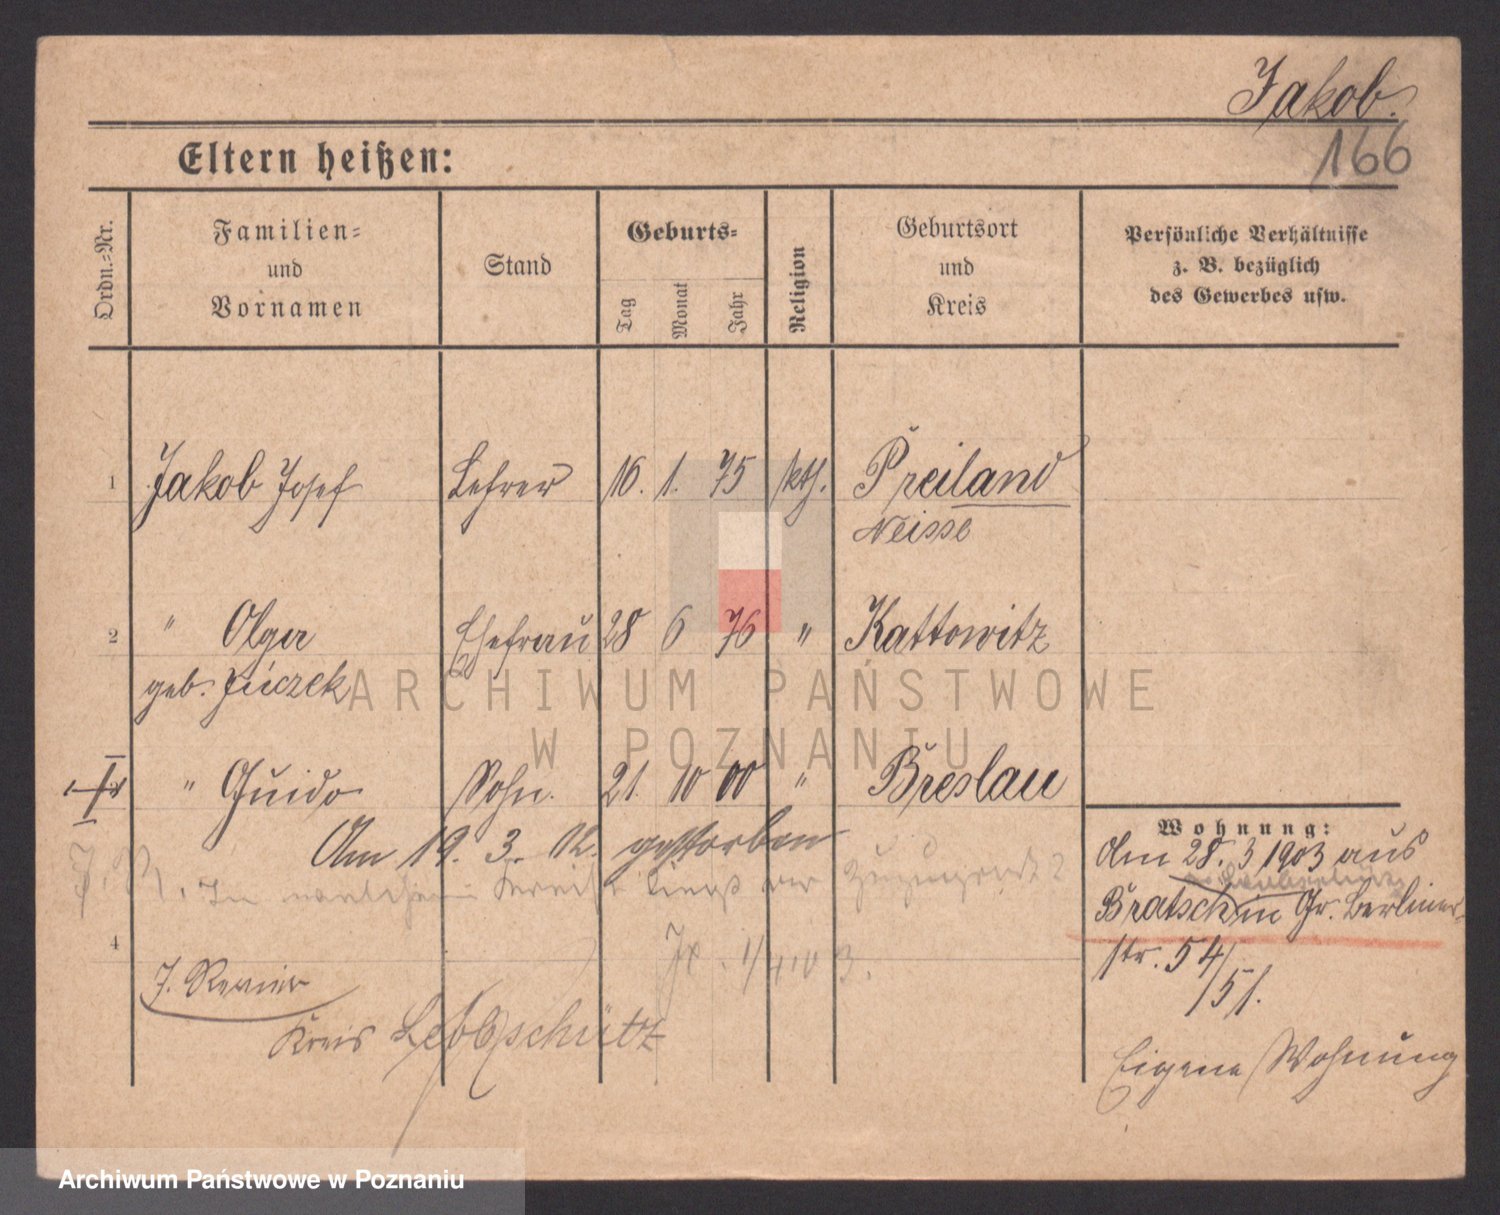 Jakob.
166
Eltern heißen:
Ordn.=Nr.
Familien=
und
Vornamen
Stand
Geburts=
Tag
Monat
Jahr
Religion
Geburtsort
und
Kreis
Persönliche Verhältnisse
z. B. bezüglich
des Gewerbes usw.
1 Jakob Josef Lehrer 16. 1. 75 kth. Preiland
Neisse
2 " Olga Ehefrau 28 6 76 " Kattowitz
geb.
" Guido Sohn. 21. 10 00 " Breslau
Am 19. 3. 02. gestorben
Wohnung:
Am 28. 3 1903 aus
Bratsch in Gr. Berliner-
str. 54/
51.
4
J. Revier
Kreis Leobschütz
Eigene Wohnung
ARCHIWUM PAŃSTWOWE
W POZNANIU
Archiwum Państwowe w Poznaniu